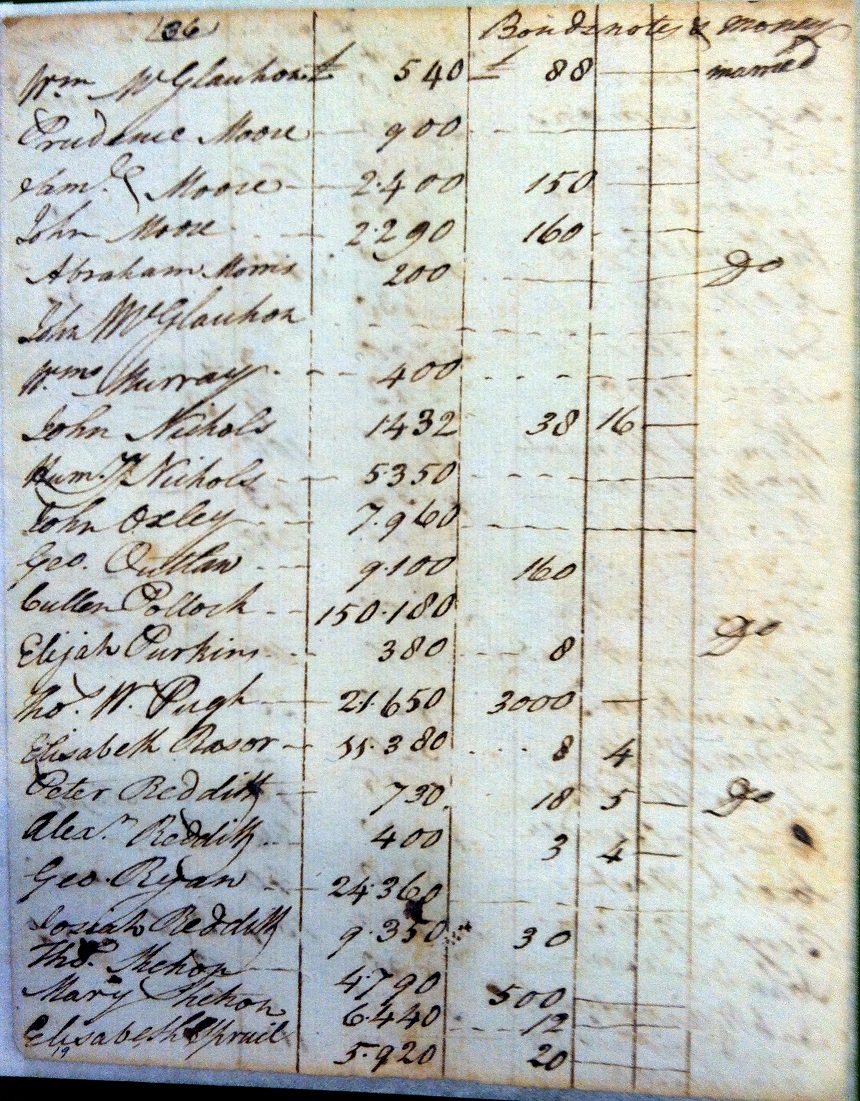 136 Bonds notes & Money
Wm McGlauhon £ 540 £ 88 married
Prudence Moore 900
Saml Moore 2.400 150
John Moore 2.290 160
Abraham Morris 200 Do
John McGlauhon
Wms Murray 400
John Nichols 1432 38 16
Humy Nichols 5.350
John Oxley 7.960
Geo. Outlaw 9.100 160
Cullen Pollock 150.180
Elijah Purkins 380 8 Do
Thos. W. Pugh 21.650 3000
Elisabeth Rasor 11.380 8 4
Peter Reddith 730 18 5 Do
Alexr Reddith 400 3 4
Geo. Ryan 24.360
Josiah Reddith 9.350 30
Thos. 4790 500
Mary 6.440 12
Elisabeth Spruil 5.920 20
19